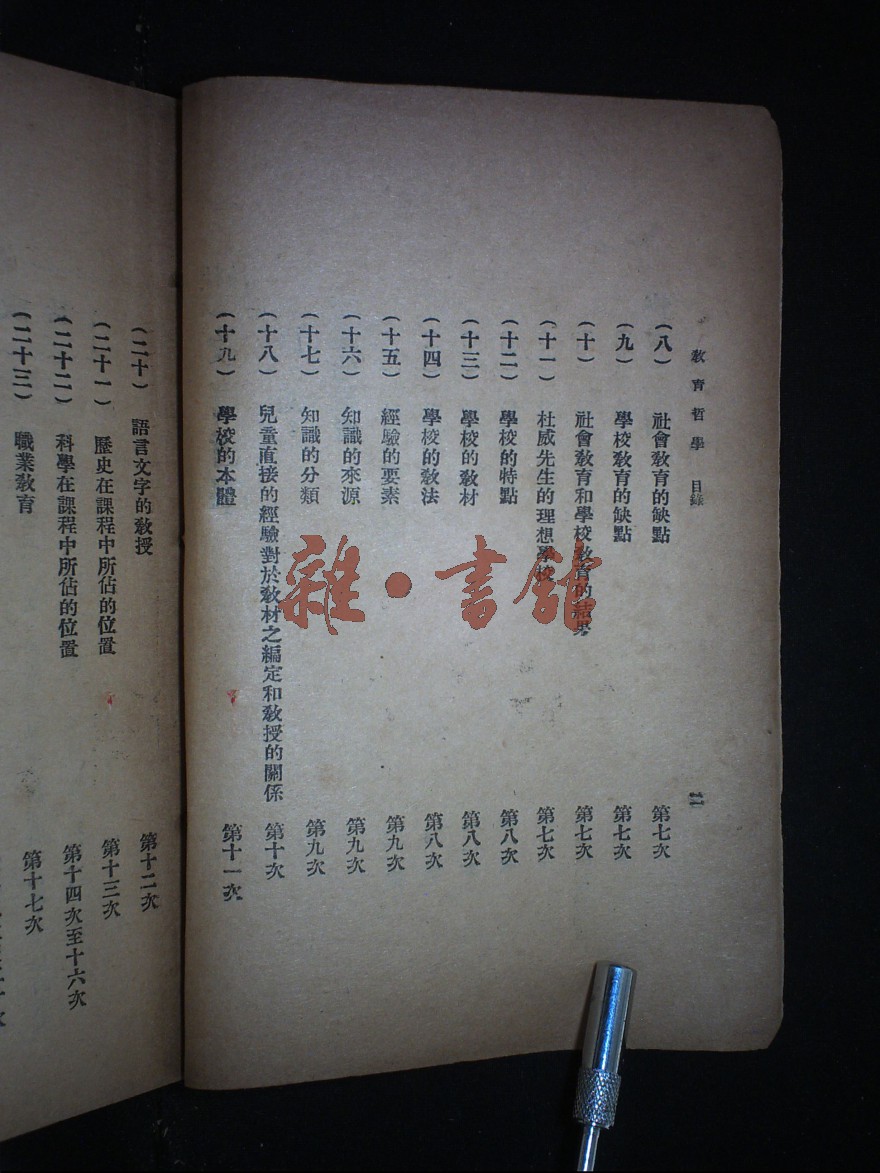 教育哲學 目錄
二
(八) 社會教育的缺點 第七次
(九) 學校教育的缺點 第七次
(十) 社會教育和學校教育的結果 第七次
(十一) 杜威先生的理想學校 第七次
(十二) 學校的特點 第八次
(十三) 學校的教材 第八次
(十四) 學校的教法 第八次
(十五) 經驗的要素 第九次
(十六) 知識的來源 第九次
(十七) 知識的分類 第九次
(十八) 兒童直接的經驗對於教材之編定和教授的關係 第十次
(十九) 學校的本體 第十一次
(二十) 語言文字的教授 第十二次
(二十一) 歷史在課程中所佔的位置 第十三次
(二十二) 科學在課程中所佔的位置 第十四次至十六次
(二十三) 職業教育 第十七次
雜·書館